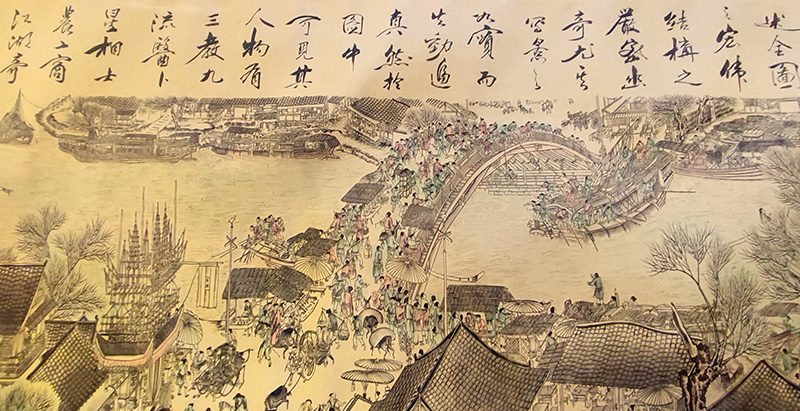 述全圖
之宏偉
結構之
嚴密出
奇尤其
寫景之
實而
生動逼
真然於
圖中
可見其
人物有
三教九
流醫卜
星相士
農工商
江湖奇